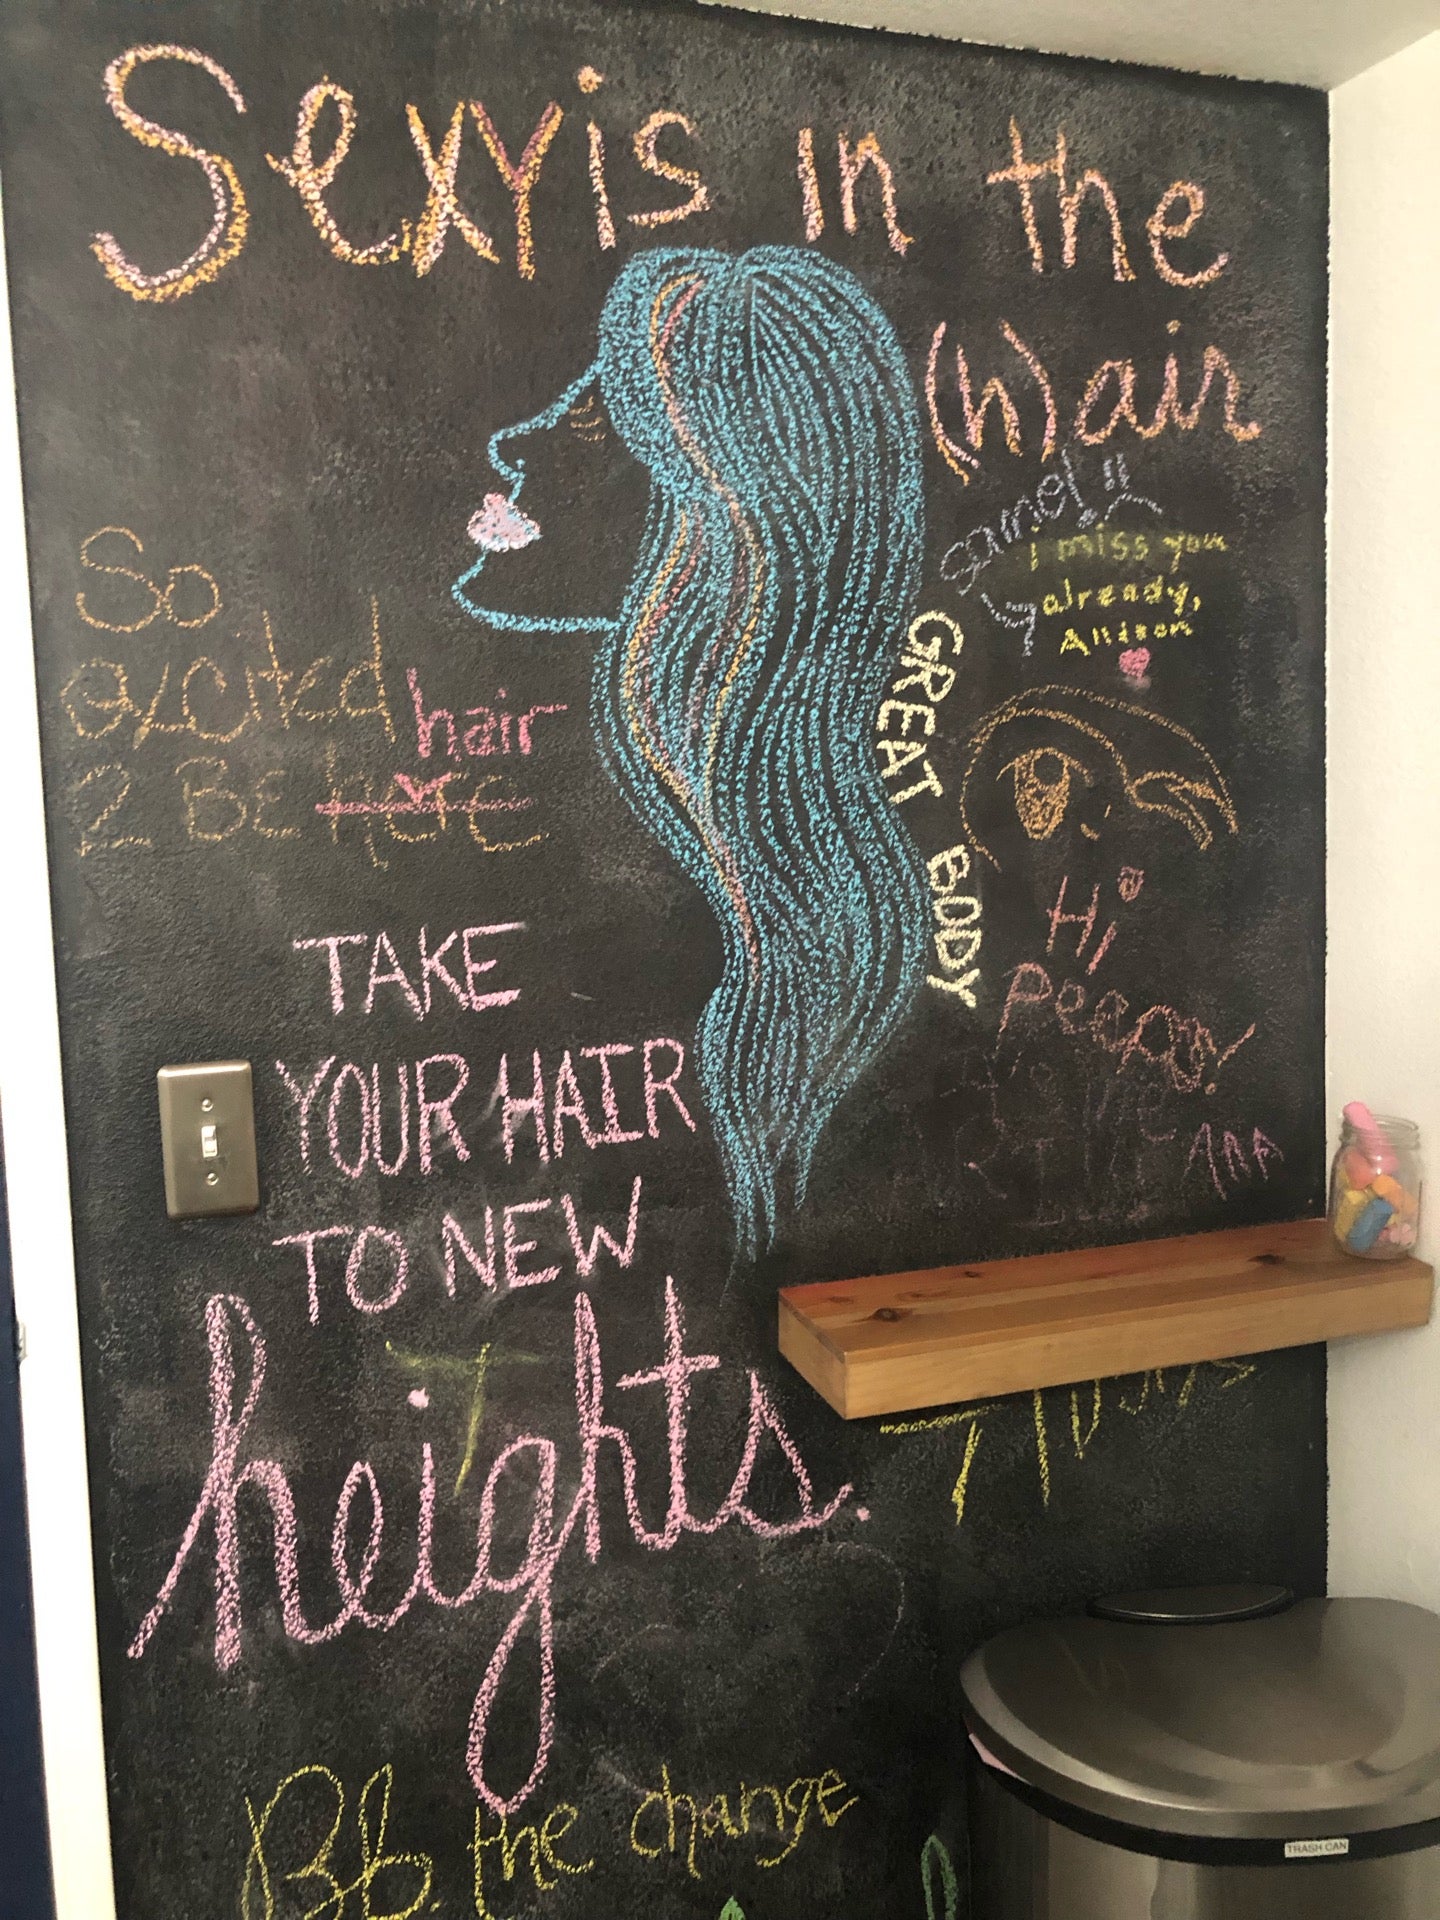 Sexy is in the
(h)air
same! !!
i miss you
already,
Allison
So
excited
hair
2 BE HERE
GREAT BODY
Hi
TAKE
YOUR HAIR
TO NEW
heights.
Ana
Be the change
TRASH CAN